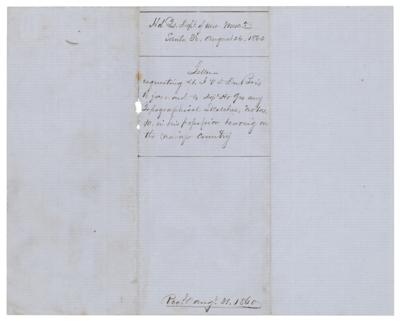 Hd. Qr. Dept. of New Mex.
Santa Fe. August 26, 1860
Letter
requesting Lt. J. V. D. Du Bois
to forward to Dept. Hd Qrs any
topographical sketches, notes
&c. in his possession bearing on
the Navajo Country
Recd. Aug. 31. 1860